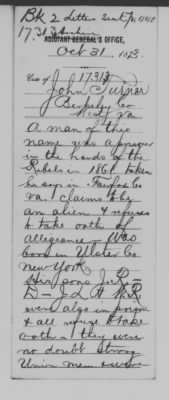 Bk 2 Letters Sent Pr
17.313
ADJUTANT GENERAL'S OFFICE,
Oct 31 1873.
Case of 17313
John Turner
Berkeley Co
West Va
A man of this
name was a prisoner
in the hands of the
Rebels in 1861 taken
he says in Fairfax Co
Va. claims to be
an alien & refuses
to take oath of
allegiance - Was
born in Ulster Co
New York
His sons J. R. -
D - J. L & W. R.
were also in prison
& all refuse to take
oath - they were
no doubt strong
Union men